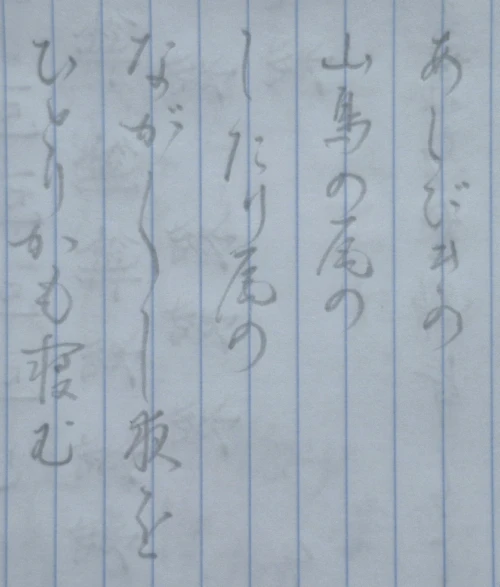 あしびきの
山鳥の尾の
したり尾の
なが〱し夜を
ひとりかも寝む